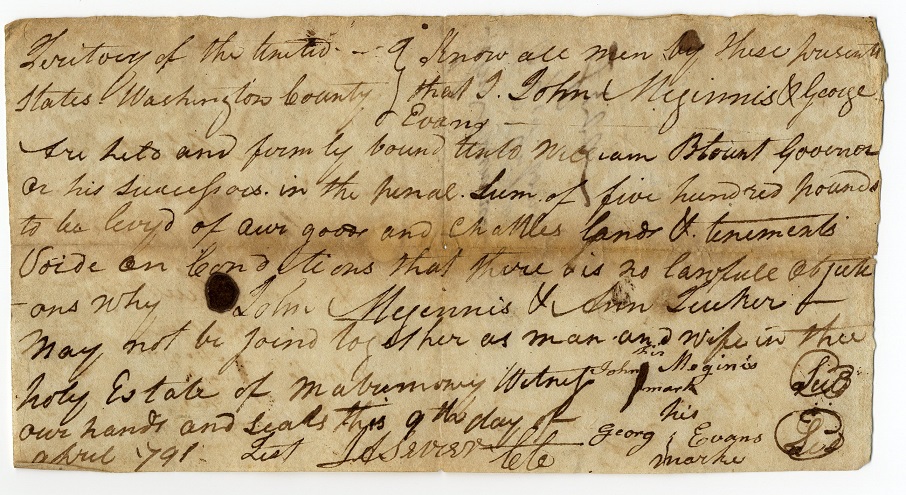 Territory of the United — } Know all men by these presents
States Washington County } that I. John Meginnis & George
Evans —
Are held and firmly bound unto William Blount Governor
or his successors. in the penal. Sum of five hundred pounds
to be levy'd of our goods and Chattles lands & tenements
Voide on Conditions that there is no lawfull objecti
-ons why John Megennis & Ann Tucker —
May not be joind together as man and wife in thee
holy Estate of Matrimony Witness John his Meginis
mark
our hands and Seals this 9th day of
Georg his Evans
marke
april 791 Test Js Sevier